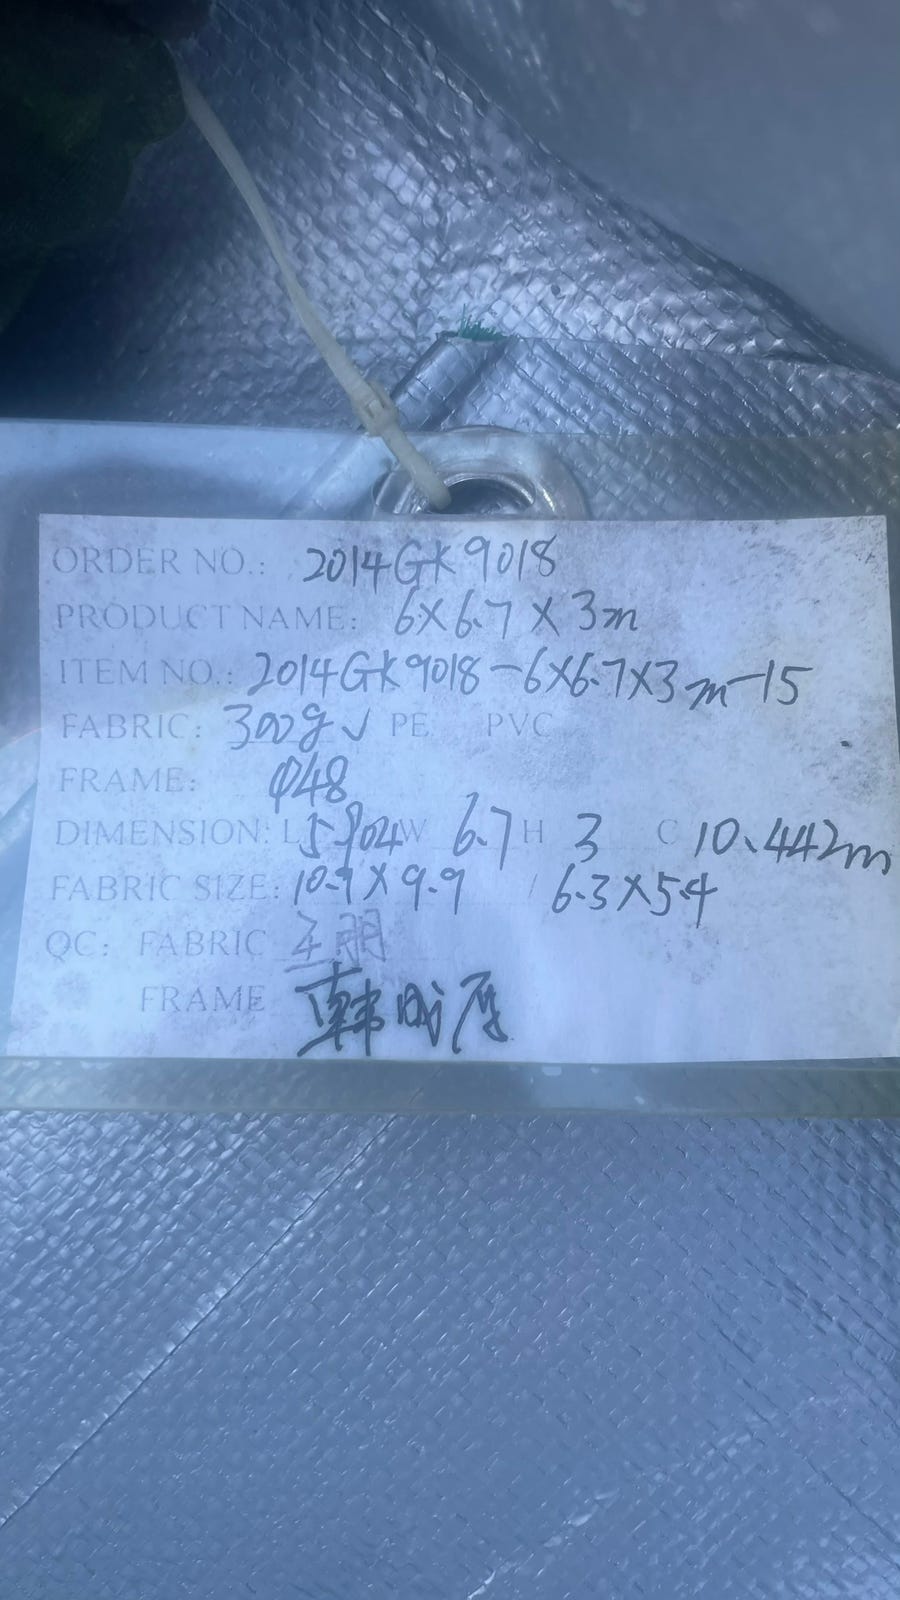 ORDER NO.: 2014GK9018
PRODUCT NAME: 6×6.7×3m
ITEM NO.: 2014GK9018-6×6.7×3m-15
FABRIC: 300g √ PE PVC
FRAME: φ48
DIMENSION: L 5.904 W 6.7 H 3 C 10.442m
FABRIC SIZE: 10.9×9.9 / 6.3×5.4
QC: FABRIC
FRAME 韩成